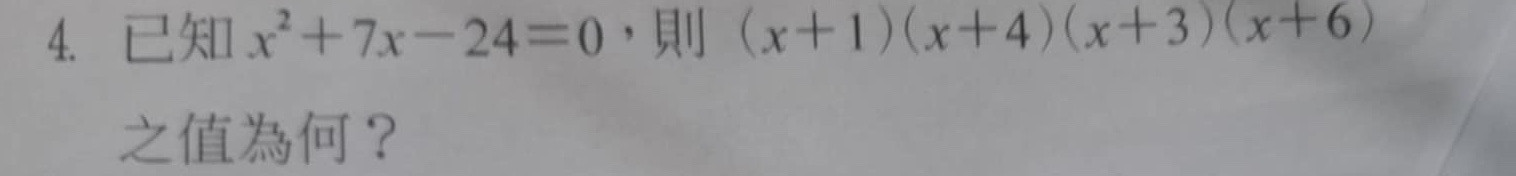 4. 已知 x²+7x−24=0，則 (x+1)(x+4)(x+3)(x+6)
之值為何？